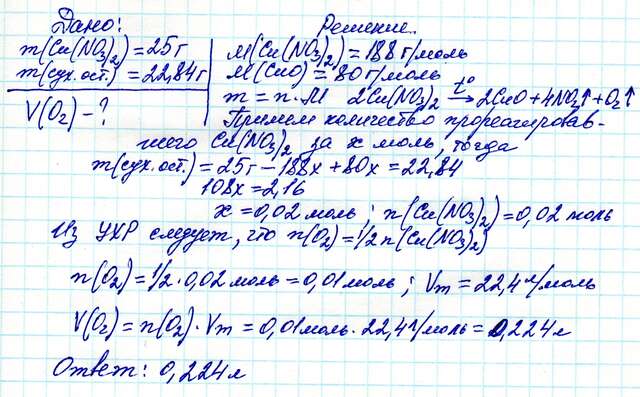 Дано: Решение.
m(Cu(NO₃)₂) = 25 г M(Cu(NO₃)₂) = 188 г/моль
m(сух. ост.) = 22,84 г M(CuO) = 80 г/моль
V(O₂) - ? m = n · M 2Cu(NO₃)₂ t° → 2CuO + 4NO₂↑ + O₂↑
Примем количество прореагировав-
шего Cu(NO₃)₂ за x моль, тогда
m(сух. ост.) = 25 г - 188x + 80x = 22,84
108x = 2,16
x = 0,02 моль ; n(Cu(NO₃)₂) = 0,02 моль
Из УХР следует, что n(O₂) = 1/2 n(Cu(NO₃)₂)
n(O₂) = 1/2 · 0,02 моль = 0,01 моль ; Vm = 22,4 л/моль
V(O₂) = n(O₂) · Vm = 0,01 моль · 22,4 л/моль = 0,224 л
Ответ: 0,224 л